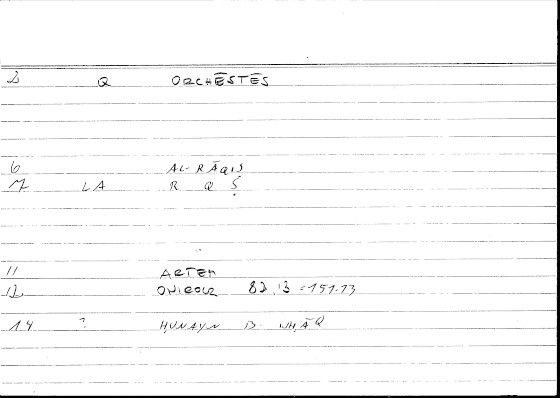 2 Q ORCHĒSTĒS
6 AL-RĀQIṢ
7 LA R Q Ṣ
11 ARTEM
12 ONIROCR 82.13 = 151.13
14 ? ḤUNAYN B. ISḤĀQ